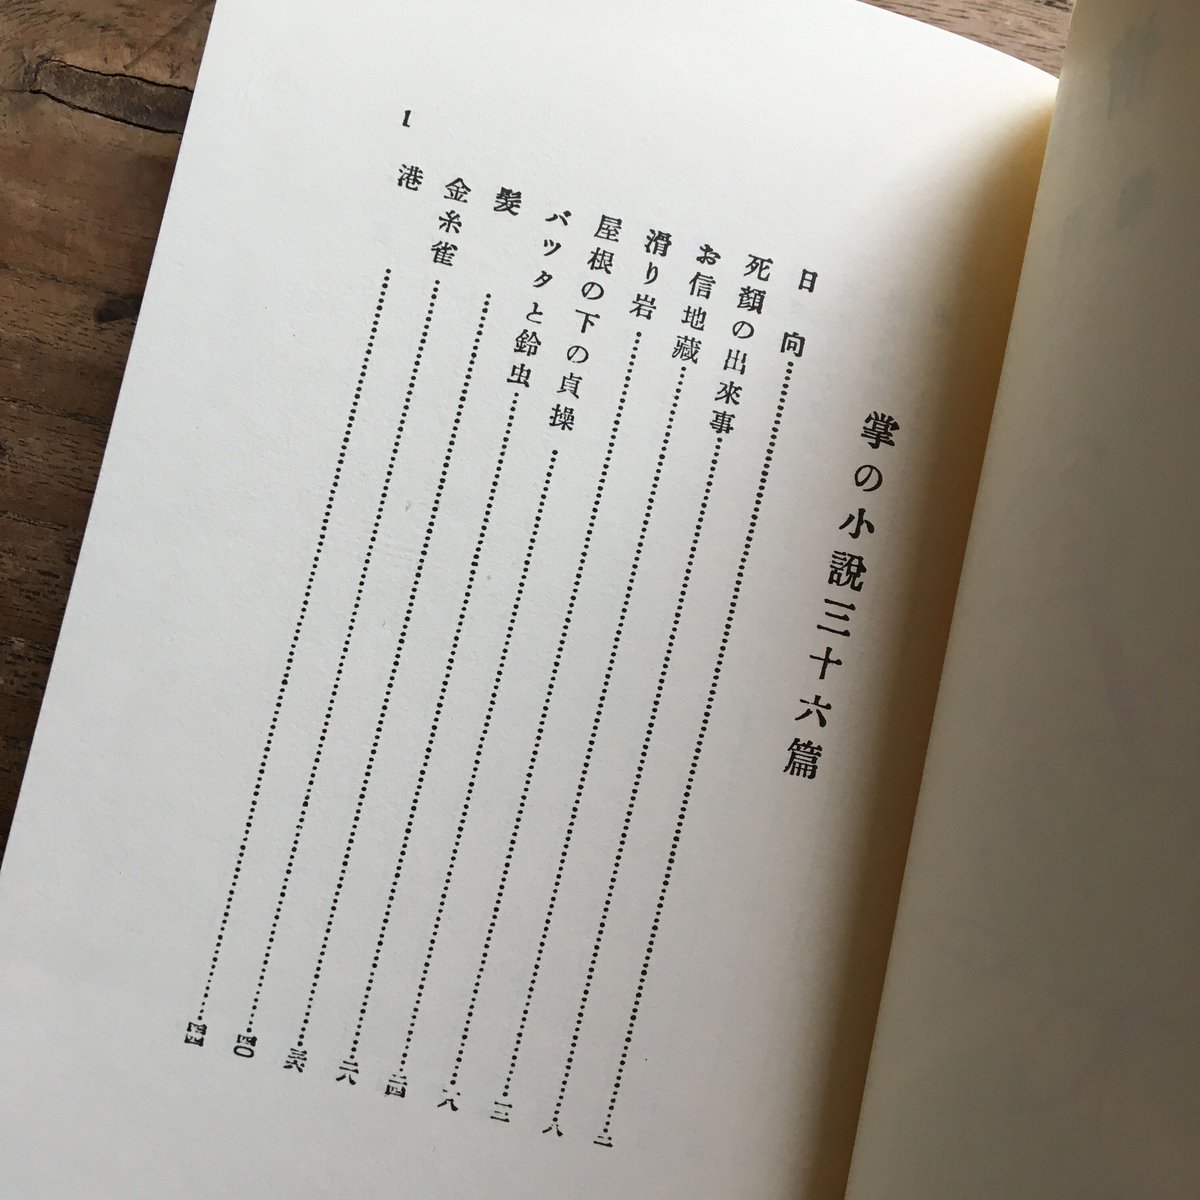 掌の小說三十六篇
日向……二
死顏の出來事……八
お信地藏
滑り岩……一八
屋根の下の貞操……二四
バッタと鈴虫
髪
金糸雀……四〇
港……四四
1